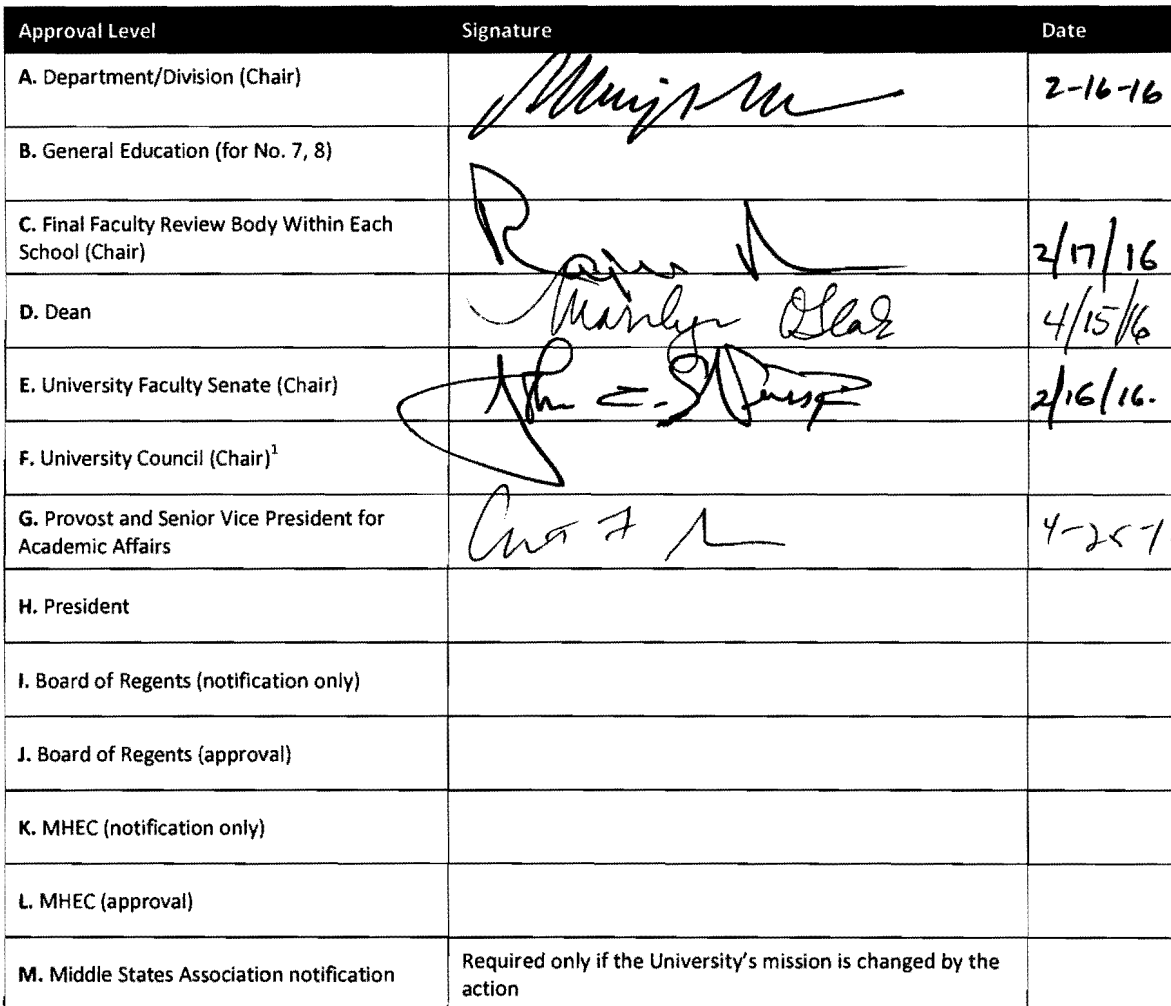 Approval Level Signature Date
A. Department/Division (Chair) 2-16-16
B. General Education (for No. 7, 8)
C. Final Faculty Review Body Within Each
School (Chair) 2/17/16
D. Dean Marilyn 4/15/16
E. University Faculty Senate (Chair) 2/16/16.
F. University Council (Chair)¹
G. Provost and Senior Vice President for
Academic Affairs 4-25-1
H. President
I. Board of Regents (notification only)
J. Board of Regents (approval)
K. MHEC (notification only)
L. MHEC (approval)
M. Middle States Association notification Required only if the University's mission is changed by the
action